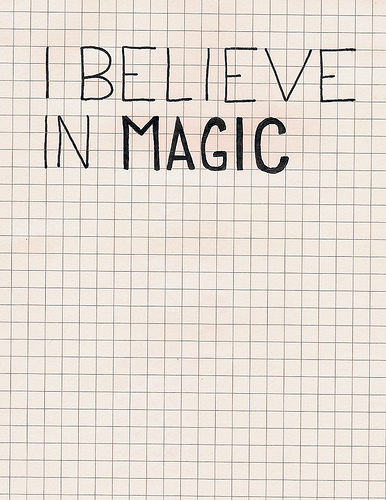 I BELIEVE
IN MAGIC